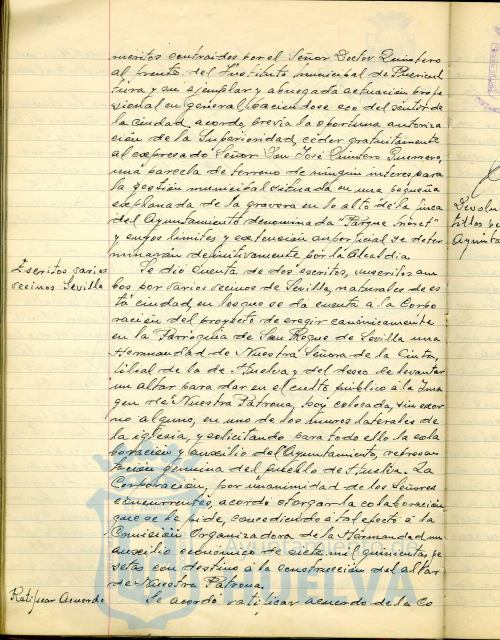 meritos contraidos por el Señor Doctor Quintero
al frente del Instituto municipal de Puericul
tura, y su ejemplar y abnegada actuación profe
sional en general, haciendose eco del sentir de
la ciudad, acordo, previa la oportuna autoriza
ción de la Superioridad, ceder gratuitamente
al expresado Señor Don José Quintero Guerrero,
una parcela de terreno de ningún interes para
la gestión municipal situada en una pequeña
explanada de la gravera en lo alto de la finca
del Ayuntamiento denominada "Parque Moret"
y cuyos limites y extensión superficial se deter
minarán definitivamente por la Alcaldia
Escritos varios
vecinos Sevilla
Se dió cuenta de dos escritos, suscritos am
bos por varios vecinos de Sevilla, naturales de es
ta ciudad, en los que se da cuenta a la Corpo
ración del proyecto de eregir canónicamente
en la Parroquia de San Roque de Sevilla una
Hermandad de Nuestra Señora de la Cinta,
filial de la de Huelva y del deseo de levantar
un altar para dar en el culto público a la Ima
gen de Nuestra Patrona, hoy colocada, sin exor
no alguno, en uno de los muros laterales de
la iglesia, y solicitando para todo ello la cola
boración y auxilio del Ayuntamiento, represen
tación genuina del pueblo de Huelva. La
Corporación, por unanimidad de los Señores
concurrentes, acordó otorgar la colaboración
que se le pide, concediendo a tal efecto a la
Comisión Organizadora de la Hermandad un
auxilio económico de siete mil quinientas pe
setas con destino a la construcción del altar
de Nuestra Patrona.
Ratificar Acuerdo
Se acordó ratificar acuerdo de la Co
Devolu
Ayunta
HUELVA